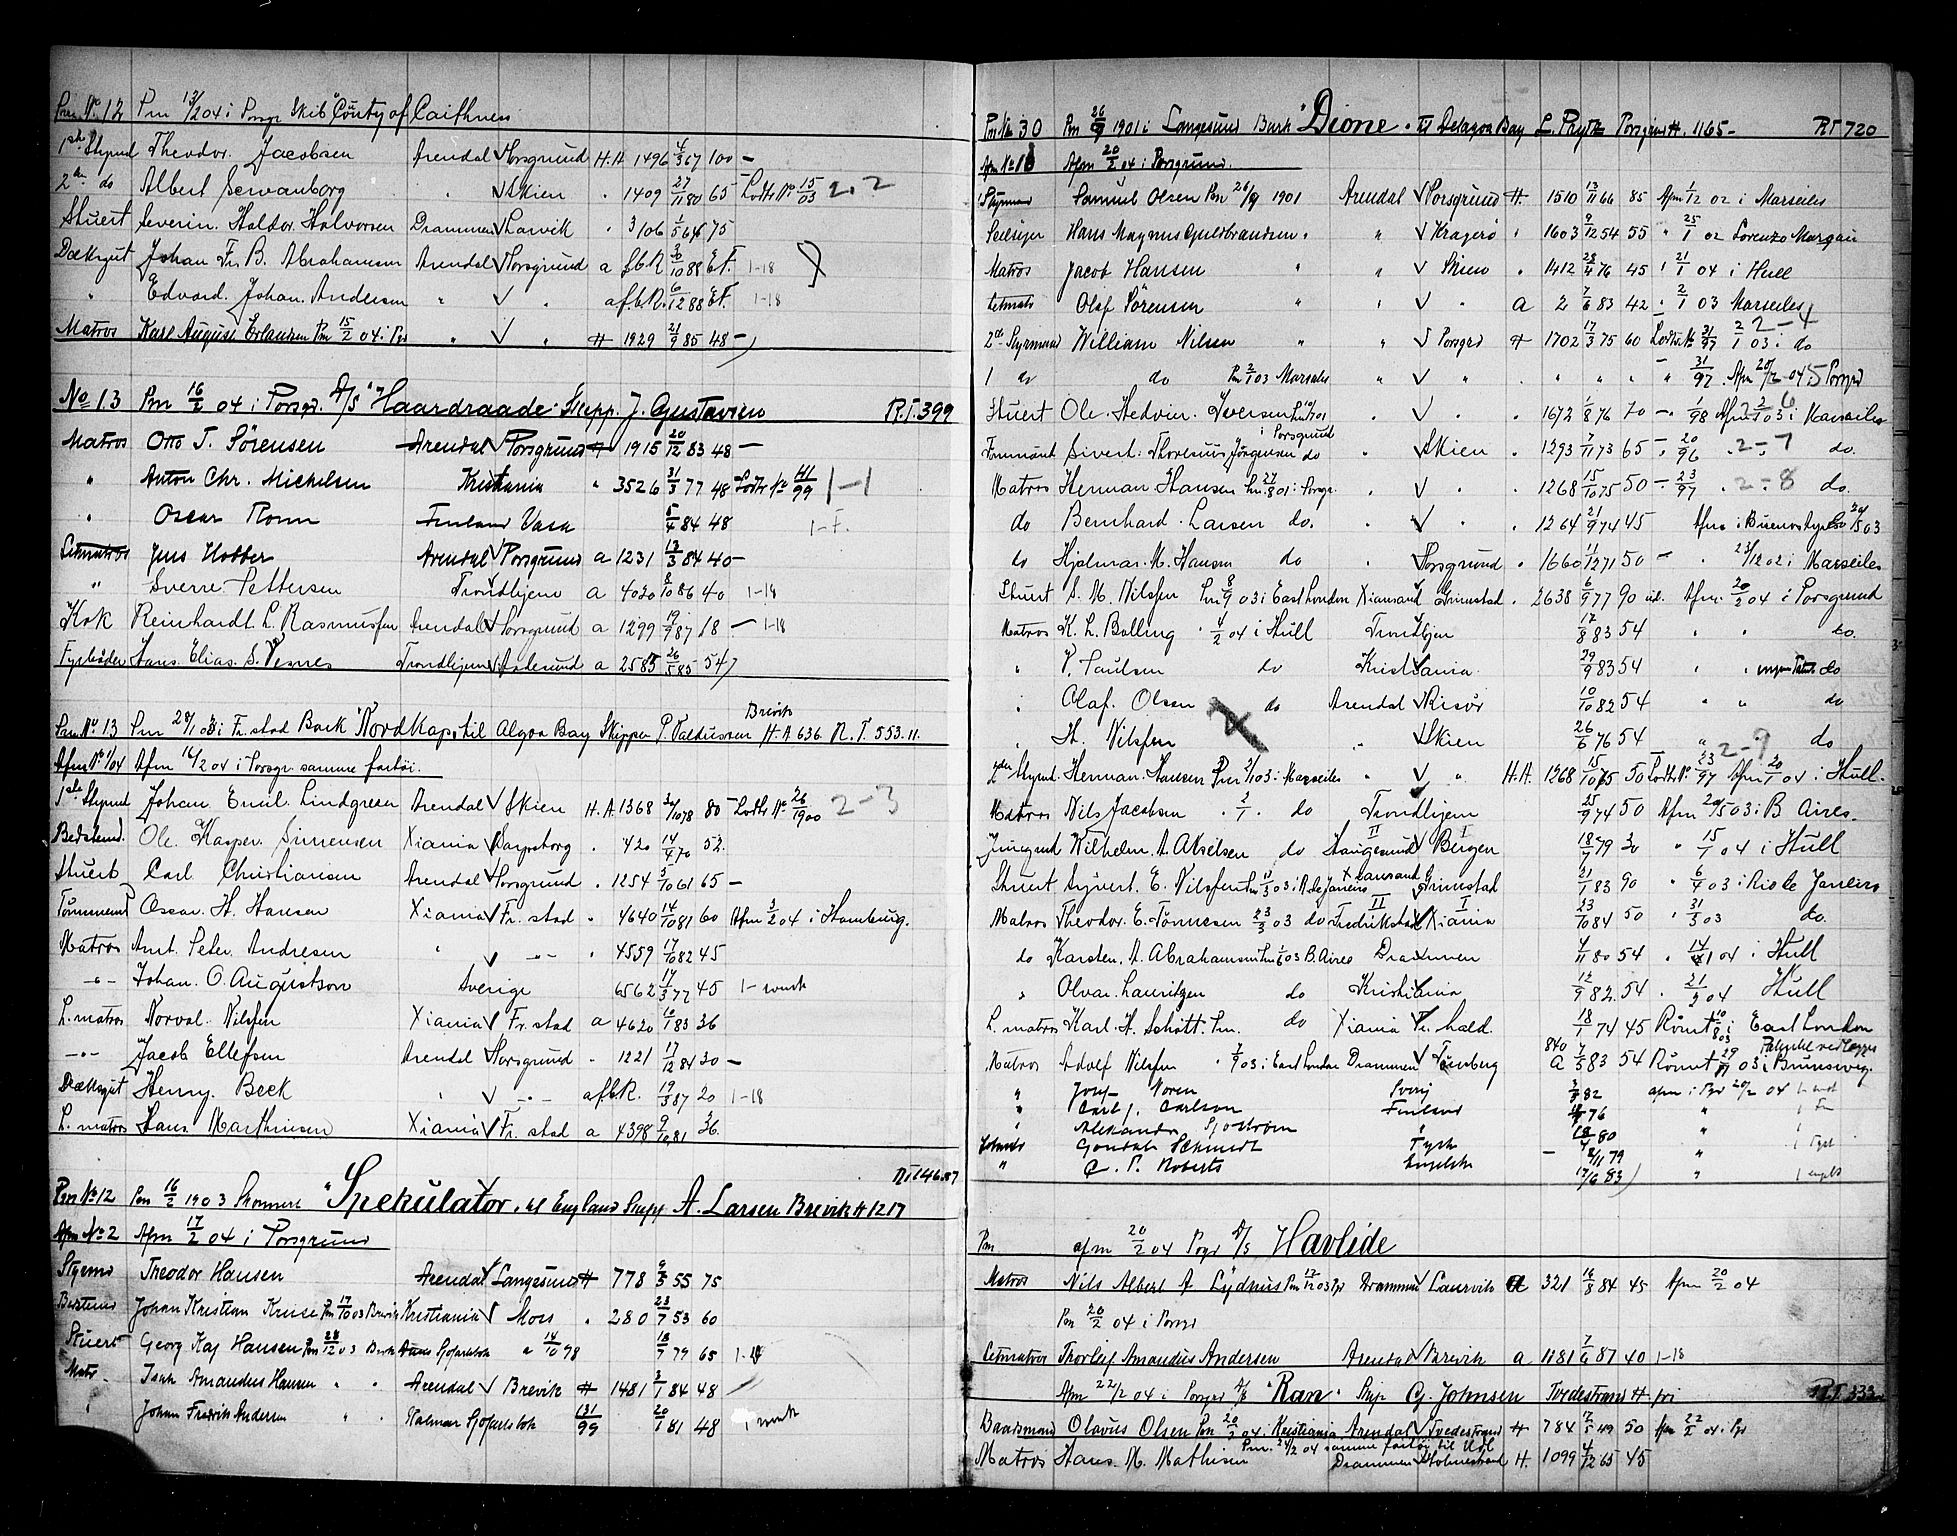 Pm No 12 Pm 13/2 04 i Porsgr Skib "County of Caithness
1ste Styrmd Theodor. Jacobsen Arendal Porsgrund H.A 1496 4/3 67 100 —
2den do Albert Servanborg " Skien " 1409 27/11 80 65 Lodts No 15/03 2.2
Stuert Severin. Haldor. Halvorsen Drammen Larvik " 3106 1/5 64 75
Dæksgut Johan Fr. B. Abrahamsen Arendal Porsgrund a afbR 3/10 88 Et. 1-18
" Edvard. Johan. Andersen " " afbR. 6/12 88 Et. 1-18
Matros Karl August Erlandsen Pm 15/2 04 i Pgr " " H 1929 21/9 85 48 —
No 13 Pm 16/2 04 i Porsgr. D/S "Haardraade" Skipp. J. Gustavsen R.T. 399
Matros Otto T. Sörensen Arendal Porsgrund H 1915 20/12 83 48 —
" Anton Chr. Mickelsen Kristiania " 3526 31/3 77 48 Lodts No 41/99 1-1
" Oscar Ronn Finland Vasa 5/4 84 48 1-F.
Letmatros Jens Hobber Arendal Porsgrund a 1231 13/3 84 40 —
" Sverre Pettersen Trondhjem a 4020 8/10 86 40 1-18
Kok Reinhardt L. Rasmussen Arendal Porsgrund a 1299 19/9 87 18 — 1-18
Fyrbøder Hans. Elias. S. Vesnes Trondhjem Aalesund a 2585 26/5 85 54
Pm No 13 Pm 28/1 03 i Fr. stad Bark "Nordkap" til Algoa Bay Skipper P. Valdursen Brevik H.A 636 R.T. 553.11.
Afm No 1/04 Afm 16/2 04 i Porsgr. samme fartöi.
1ste Styrmd Johan Emil. Lindgreen Arendal Skien H.A. 1368 3/10 78 80 — Lodts No 26/1900 2-3
Bedstemd. Ole. Kasper. Simensen Xiania Sarpsborg " 420 14/4 70 52.
Stuert Carl Christiansen Arendal Porsgrund " 1254 3/10 61 65 —
Tömmermd Oscar. H. Hansen Xiania Fr. stad " 4640 14/10 81 60 Afm 3/2 04 i Hamburg.
Matros Ant. Peter Andresen " -"- " 4559 17/10 82 45
-"- Johan. O. Augustson Sverige 6562 17/3 77 45 1-svensk
L. matros Norval. Nilssen Xiania Fr. stad a 4620 10/1 83 36
-"- Jacob Ellefsen Arendal Porsgrund " 1221 17/12 84 30 —
Dæksgut Henry. Beck " -"- afbR. 19/3 87 20 1-18
L. matros Hans. Marthinsen Xiania Fr. stad a 4398 9/10 81 36.
R.T. 146.87
Pm No 12 Pm 16/2 1903 Skonnert "Spekulator", til England Skipp A. Larsen Brevik H 1217
Afm No 2 Afm 17/2 04 i Porsgrund
Styrmd Theodor Hansen Arendal Langesund H 778 9/5 55 75
Bestmd Johan Kristian Kruse Pm 17/10 03 Brevik Kristiania Moss " 280 23/7 53 60
Stuert Georg Kaj Hansen Pm 28/12 03 Brevik Dansk Sjöfartsbok " 14/10 98 18/7 79 65 1-
Matr. Isak Amandus Hansen " " Arendal Brevik H 1481 3/1 84 48
" Johan Fredrik Andersen " " Kalmar Sjöfartsbok 131/99 20/1 81 48 1 svensk
Pm No 30 Pm 26/9 1901 i Langesund Bark "Dione" til Delagoa Bay L. Prytz Porsgrund H. 1165 — R.T. 720
Afm No 1 Afm 20/2 04 i Porsgrund.
Styrmand Samuel Olsen Pm 26/9 1901 Arendal Porsgrund H. 1510 13/11 66 85 Afm 1/12 02 i Marseiles
Seilsejer Hans Magnus Guldbrandsen " " Kragerö " 1603 9/12 54 55 " 25/1 02 Lorenzo Marques
Matros Jacob Hansen " " Skien " 1412 28/4 76 45 " 21/1 04 i Hull
Letmats Olaf Sörensen " " " a 2 7/6 83 42 " 2/1 03 Marseiles
2den Styrmand William Nilsen " " Porsgrd H 1702 17/3 75 60 Lodts No 31/97 2/1 03 i do 2-4
1 do do Pm 2/1 03 Marseiles " " " " " " " 31/97 Afm 20/2 04 Porsgrd
Stuert Ole. Hedvin. Iversen " " 1672 1/8 76 70 — 1/98 Afm 2/1 03 i Marseiles
i Porsgrund
Tömmermand Sivert. Thorenius Jörgensen do " Skien " 1293 7/11 73 65 — 20/96 " 2-7 do.
Matros Herman Hansen Pm. 27/8 01 i Porsgr. " " " 1268 15/10 75 50 — 23/97 " 2-8 do.
do Bernhard. Larsen do. " " " 1264 21/9 74 45 Afm i Buenos Ayres 20/5 03
do Hjalmar. M. Hansen do " Porsgrund " 1660 11/12 71 50 — " 23/12 02 i Marseiles
Stuert S. M. Nilssen Pm 8/9 03 i East London Xiansand Grimstad. " 2638 6/9 77 90 Afm. 20/2 04 i Porsgrund
Matros K. L. Bolling " 4/2 04 i Hull Trondhjem 17/8 83 54 " " do.
" P. Paulsen do Kristiania 29/9 83 54 " " do
" Olaf. Olsen do Arendal Risör 10/10 82 54 " " do
" H. Nilssen " Skien 26/6 76 54 " 2-9 do
2den Styrmd. Herman. Hansen Pm 2/1 03 i Marseiles " " H.A. 1268 15/10 75 50 Lodts No. 23/97 Afm 20/1 04 i Hull.
Matros Nils Jacobsen " 2/1. do Trondhjem 25/9 74 50 Afm 20/5 03 i B. Aires.
Jungmd Wilhelm A. Akselsen do Haugesund II Bergen I 18/7 79 30 " 15/1 04 i Hull
Stuert Sigvert. E. Nilssen Pm 11/3 03 i R. de Janeiro Xiansand Grimstad 21/1 83 90 " 6/4 03 i Rio de Janeiro
Matros Theodor. E. Tönnesen 23/3 03 do Fredrikstad II Xiania I 23/10 84 50 " 31/5 03 do.
do Karsten. A. Abrahamsen Pm 1/6 03 B. Aires Drammen 4/11 80 54 " 14/1 04 i Hull
" Olvar. Lauritzen do Kristiania 12/9 82. 54 " 21/2 04 Hull
L. matros Karl. H. Schött. Pm. do Xiania Fr. hald. 18/1 74 45 Römt 10/8 03 i East London
Matros Adolf Nilssen " 7/9 03 i East London Drammen Tönsberg 840 a 7/5 83 54 Römt 29/11 03 i Brunsvig.
" Josef Noren Sverig 3/3 82 afm i Pgr 20/2 04 1 svd
" Carl J. Carlson Finland 76 " 1 Fin
" Aleksander Sjöström " 18/4 80 "
Letmats Gondale Schmidt Tysk — 2/11 79 " 1 Tysk
" C. P. Roberts Engelsk 17/6 83 " 1 engelsk
Pm afm 20/2 04 Porgr D/S Havlide
Matros Nils Albert A Lydhus Pm 12/12 03 Pgr Drammen Laurvik a 321 16/8 84 45 Afm 20/2 04
Pm 20/2 04 i Porsgr
Letmatros Thorleif Amandus Andersen Arendal Brevik a 1181 7/6 87 40 1-18
Afm 22/2 04 i Porsgr D/S "Ran" Skip G. Johnsen Tvedestrand H. fri R.T. 333
Baadsmand Olavus Olsen Pm 20/2 04 i Kristiania Arendal Tvedestrand H 784 17/5 49 50 Afm 22/2 04 i Pgr
Pm. 24/2 04 samme fartöi til Udl
Matros Hans. M. Mathisen Drammen Holmestrand H. 1099 4/12 65 45